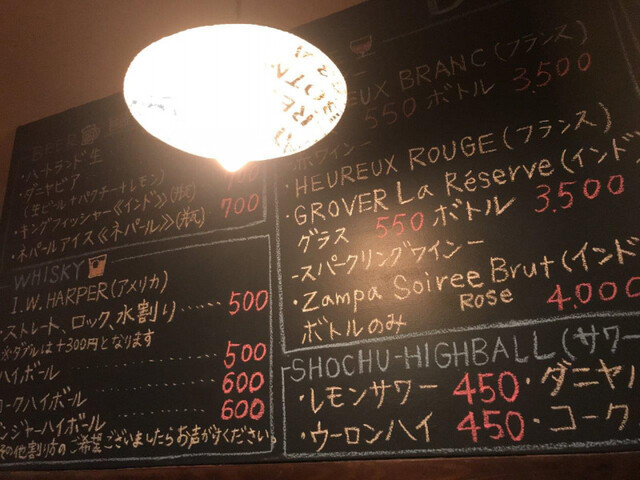 BEER
・ハートランド生
・ダーヤビア
(生ビール+パクチー+レモン) 700
・キングフィッシャー《インド》(瓶)
・ネパールアイス《ネパール》(瓶) 700
WHISKY
I.W. HARPER(アメリカ)
・ストレート、ロック、水割り…… 500
※ダブルは+300円となります
ハイボール 500
コークハイボール 600
ジンジャーハイボール 600
その他割り方のご希望ございましたらお声がけください。
BRANC(フランス)
550 ボトル 3,500
赤ワイン
・HEUREUX ROUGE(フランス)
・GROVER La Réserve(インド
グラス 550 ボトル 3,500
-スパークリングワイン-
・Zampa Soiree Brut(インド
Rose
ボトルのみ 4,000
SHOCHU-HIGHBALL(サワー
・レモンサワー 450 ・ダニヤ
・ウーロンハイ 450 ・コーク